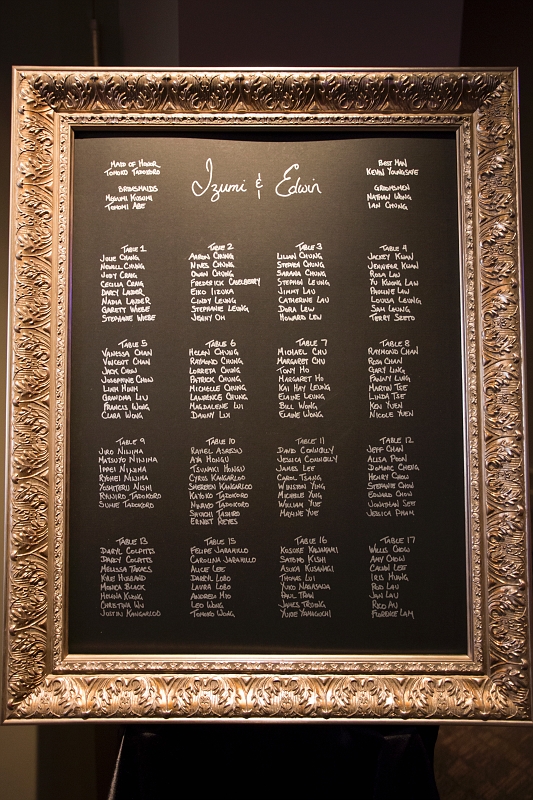 Maid of Honor
Tomoko Tadokoro
Bridesmaids
Megumi Kusumi
Tomomi Abe
Izumi & Edwin
Best Man
Kevin Youngsaye
Groomsmen
Nathan Wong
Ian Chung
Table 1
Julie Chang
Newell Chang
Judy Craig
Cecilia Craig
Darcy Lauder
Nadia Lauder
Garett Wiebe
Stephanie Wiebe
Table 2
Aaron Chung
Nives Chung
Owen Chung
Frederick Caselberry
Eiko Iizuka
Cindy Leung
Stephanie Leung
Jenny Oh
Table 3
Lilian Chung
Stephen Chung
Sarana Chung
Stephen Leung
Jimmy Lau
Catherine Lau
Dora Lew
Howard Lew
Table 4
Jackey Kuan
Jennifer Kuan
Rosa Lau
Yu Kuong Lan
Pauline Lau
Louisa Leung
Sam Leung
Terry Szeto
Table 5
Vanessa Chan
Vincent Chan
Jack Chow
Josephine Chow
Linh Huynh
Grandma Liu
Francis Wong
Clara Wong
Table 6
Helen Chung
Raymond Chung
Lorreta Chung
Patrick Chung
Michelle Chung
Lawrence Chung
Magdalene Lui
Danny Lui
Table 7
Michael Chu
Margaret Chu
Tony Ho
Margaret Ho
Kai Hay Leung
Elaine Leung
Bill Wong
Elaine Wong
Table 8
Raymond Chan
Rosa Chan
Gary Ling
Fanny Lung
Martin Tse
Linda Tse
Ken Yuen
Nicole Yuen
Table 9
Jiro Niijima
Matsuyo Niijima
Ippei Niijima
Ryohei Niijima
Yoshiteru Nishi
Ryujiro Tadokoro
Sumie Tadokoro
Table 10
Rahel Asresu
Aya Hongu
Tsunaki Hongu
Cyrus Kangarloo
Shereen Kangarloo
Kayoko Tadokoro
Minako Tadokoro
Shuichi Tashiro
Ernest Reyes
Table 11
David Connolly
Jessica Connolly
James Lee
Carol Tsang
Winston Ying
Michele Yung
William Yue
Maxine Yue
Table 12
Jeff Chan
Alisa Poon
Dominic Cheng
Henry Chow
Stefanie Chow
Edward Chow
Jonathan Sett
Jessica Pham
Table 13
Daryl Colpitts
Darcy Colpitts
Melissa Takacs
Kyle Husband
Monica Black
Helena Kwong
Christina Wu
Justin Kangarloo
Table 15
Felipe Jaramillo
Carolina Jaramillo
Alice Lee
Darryl Lobo
Laura Lobo
Andrew Mio
Leo Wong
Tomoko Wong
Table 16
Kosuke Kajinami
Satomi Kishi
Asuka Kusanagi
Thomas Lui
Yuko Nagasada
Paul Tran
James Truong
Yukie Yamaguchi
Table 17
Willis Chow
Amy Chow
Calvin Lee
Iris Hung
Rob Lau
Jon Lau
Rico Au
Florence Lam